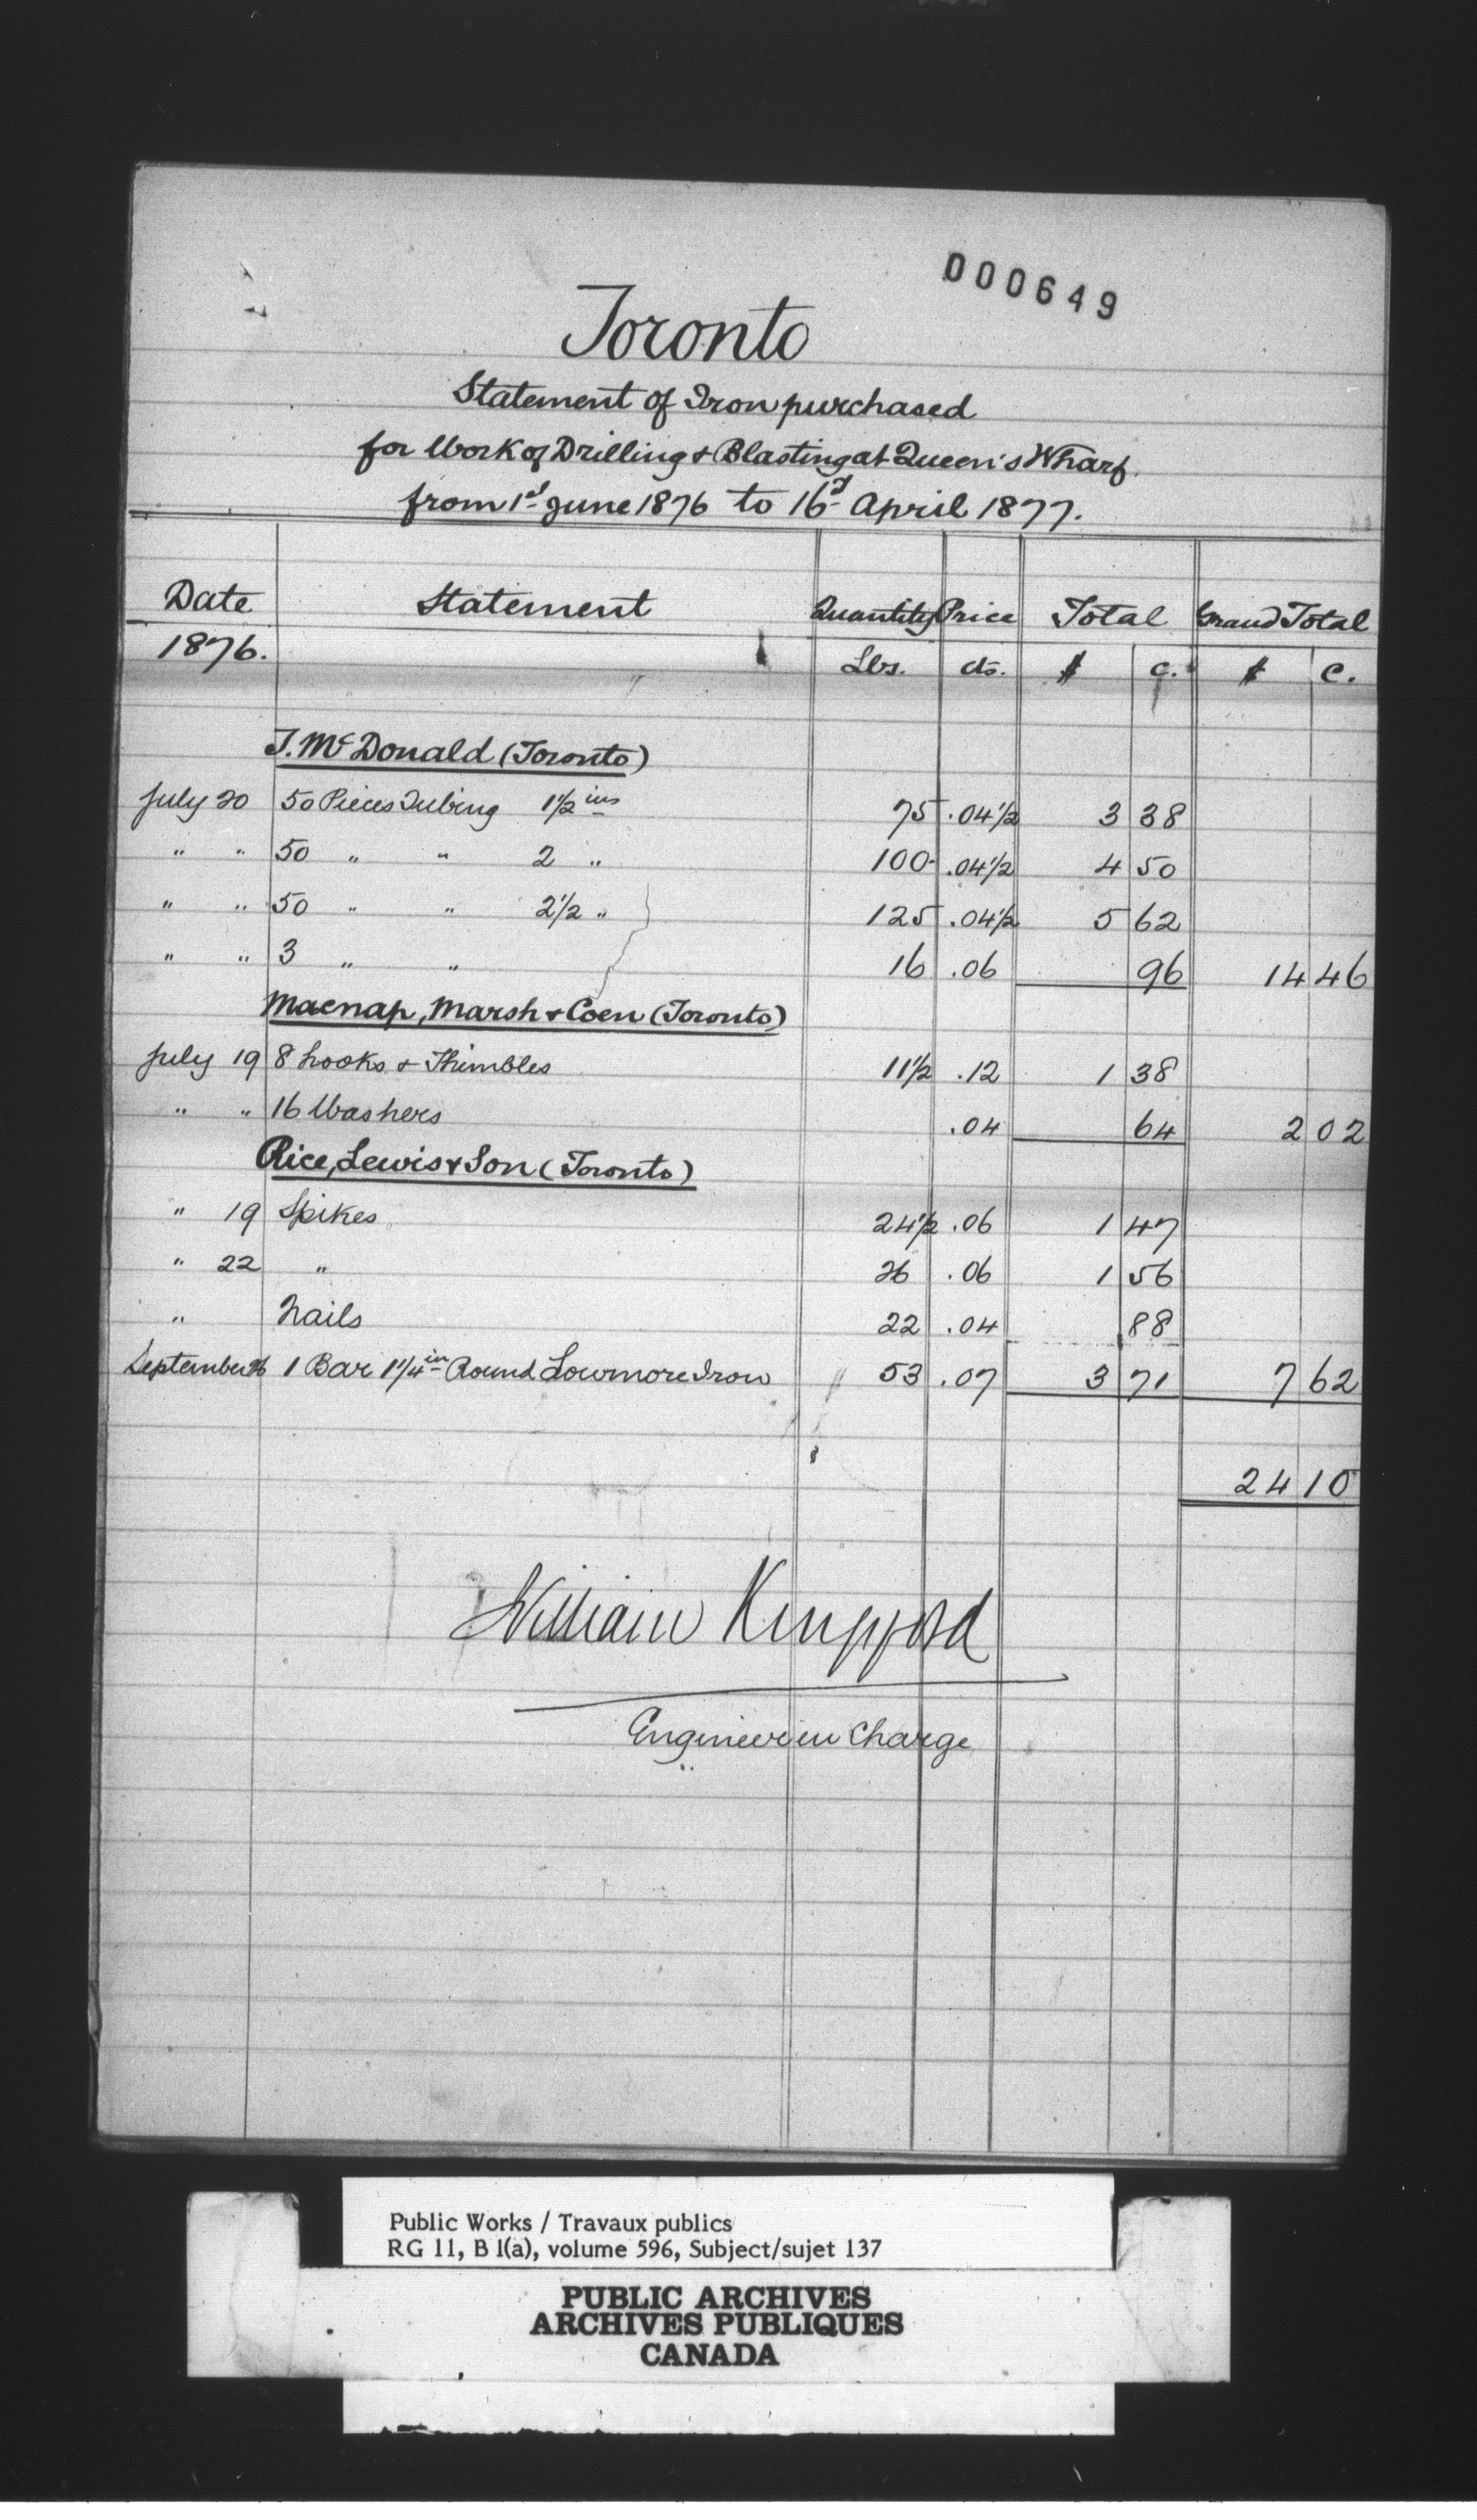 D00649
Toronto
Statement of Iron purchased
for Work of Drilling & Blasting at Queen's Wharf.
from 1st June 1876 to 16th April 1877.
Date Statement Quantity Price Total Grand Total
1876. Lbs. cts. $ c. $ c.
T. McDonald (Toronto)
July 20 50 Pieces Tubing 1½ ins 75 .04½ 3 38
" " 50 " " 2 " 100 .04½ 4 50
" " 50 " " 2½ " 125 .04½ 5 62
" " 3 " " 16 .06 96 14 46
Macnap, Marsh & Coen (Toronto)
July 19 8 hooks & Thimbles 11½ .12 1 38
" " 16 Washers .04 64 2 02
Rice, Lewis & Son (Toronto)
" 19 Spikes 24½ .06 1 47
" 22 " 26 .06 1 56
" Nails 22 .04 88
September 26 1 Bar 1¼ in Round Lowmore Iron 53 .07 3 71 7 62
24 10
William Kingsford
Engineer in Charge
Public Works / Travaux publics
RG 11, B 1(a), volume 596, Subject/sujet 137
PUBLIC ARCHIVES
ARCHIVES PUBLIQUES
CANADA